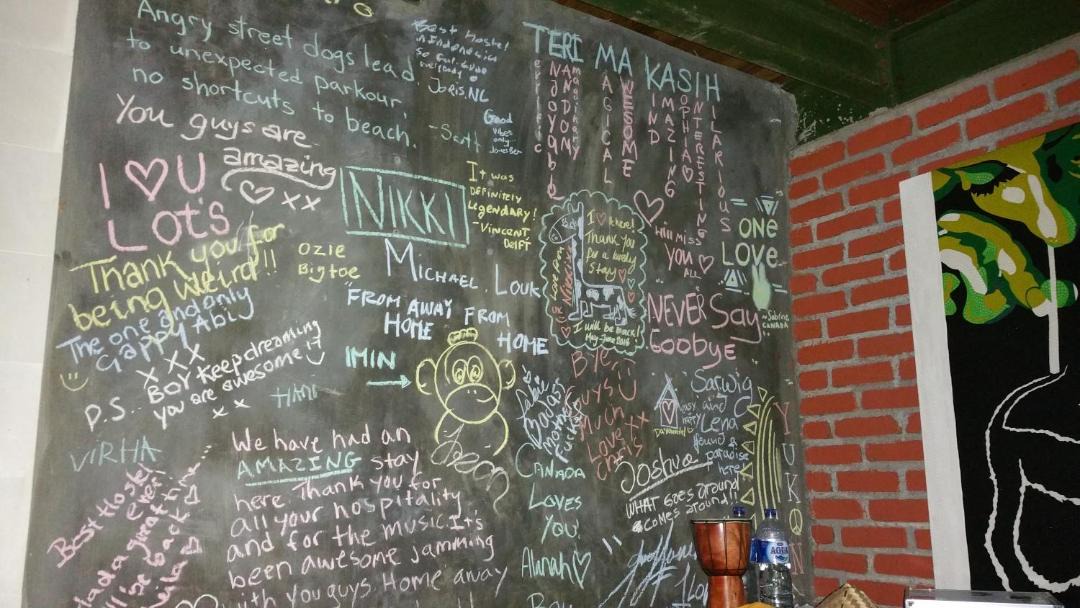 Angry street dogs lead
to unexpected parkour,
no shortcuts to beach.
-Scott
Best Hostel
in Indonesia
so Gul-Gude
everybody
Joris.NL
Good
vibes
only
TERI MA KASIH
MAGICAL
AWESOME
KIND
AMAZING
SOPHIA
INTERESTING
HILARIOUS
You guys are
amazing
xx
I ♡ U
LOTS
NIKKI
It was
DEFINITELY
Legendary!
-VINCENT
DELFT
I ♡ it here!
Thank you
for a lovely
stay
I will be back!
May-June 2016
I'll miss
You
ALL
ONE
LOVE
~Sabrine
CANADA
Thank you for
being weird!!
OZIE
Big toe
MICHAEL. LOUK
"FROM AWAY FROM
HOME
HOME
The one and only
Gappy Abij
XX
NEVER Say
Goobye
IMIN
P.S. BOY Keep dreaming
you are awesome
xx
HANI
Bye
Guys
Much
Love xx
Chris
Sarwig
and
Lena
found a
paradise
here!
YUKON
VIRHA
We have had an
AMAZING stay
here. Thank you for
all your hospitality
and for the music. It's
been awesome jamming
with you guys. Home away
CANADA
LOVES
YOU!
Alanah ♡
Joshua!
WHAT GOES around
comes around!!
Best Hostel
ever!
had a great time
I'll be back
1 Lov
AQUA